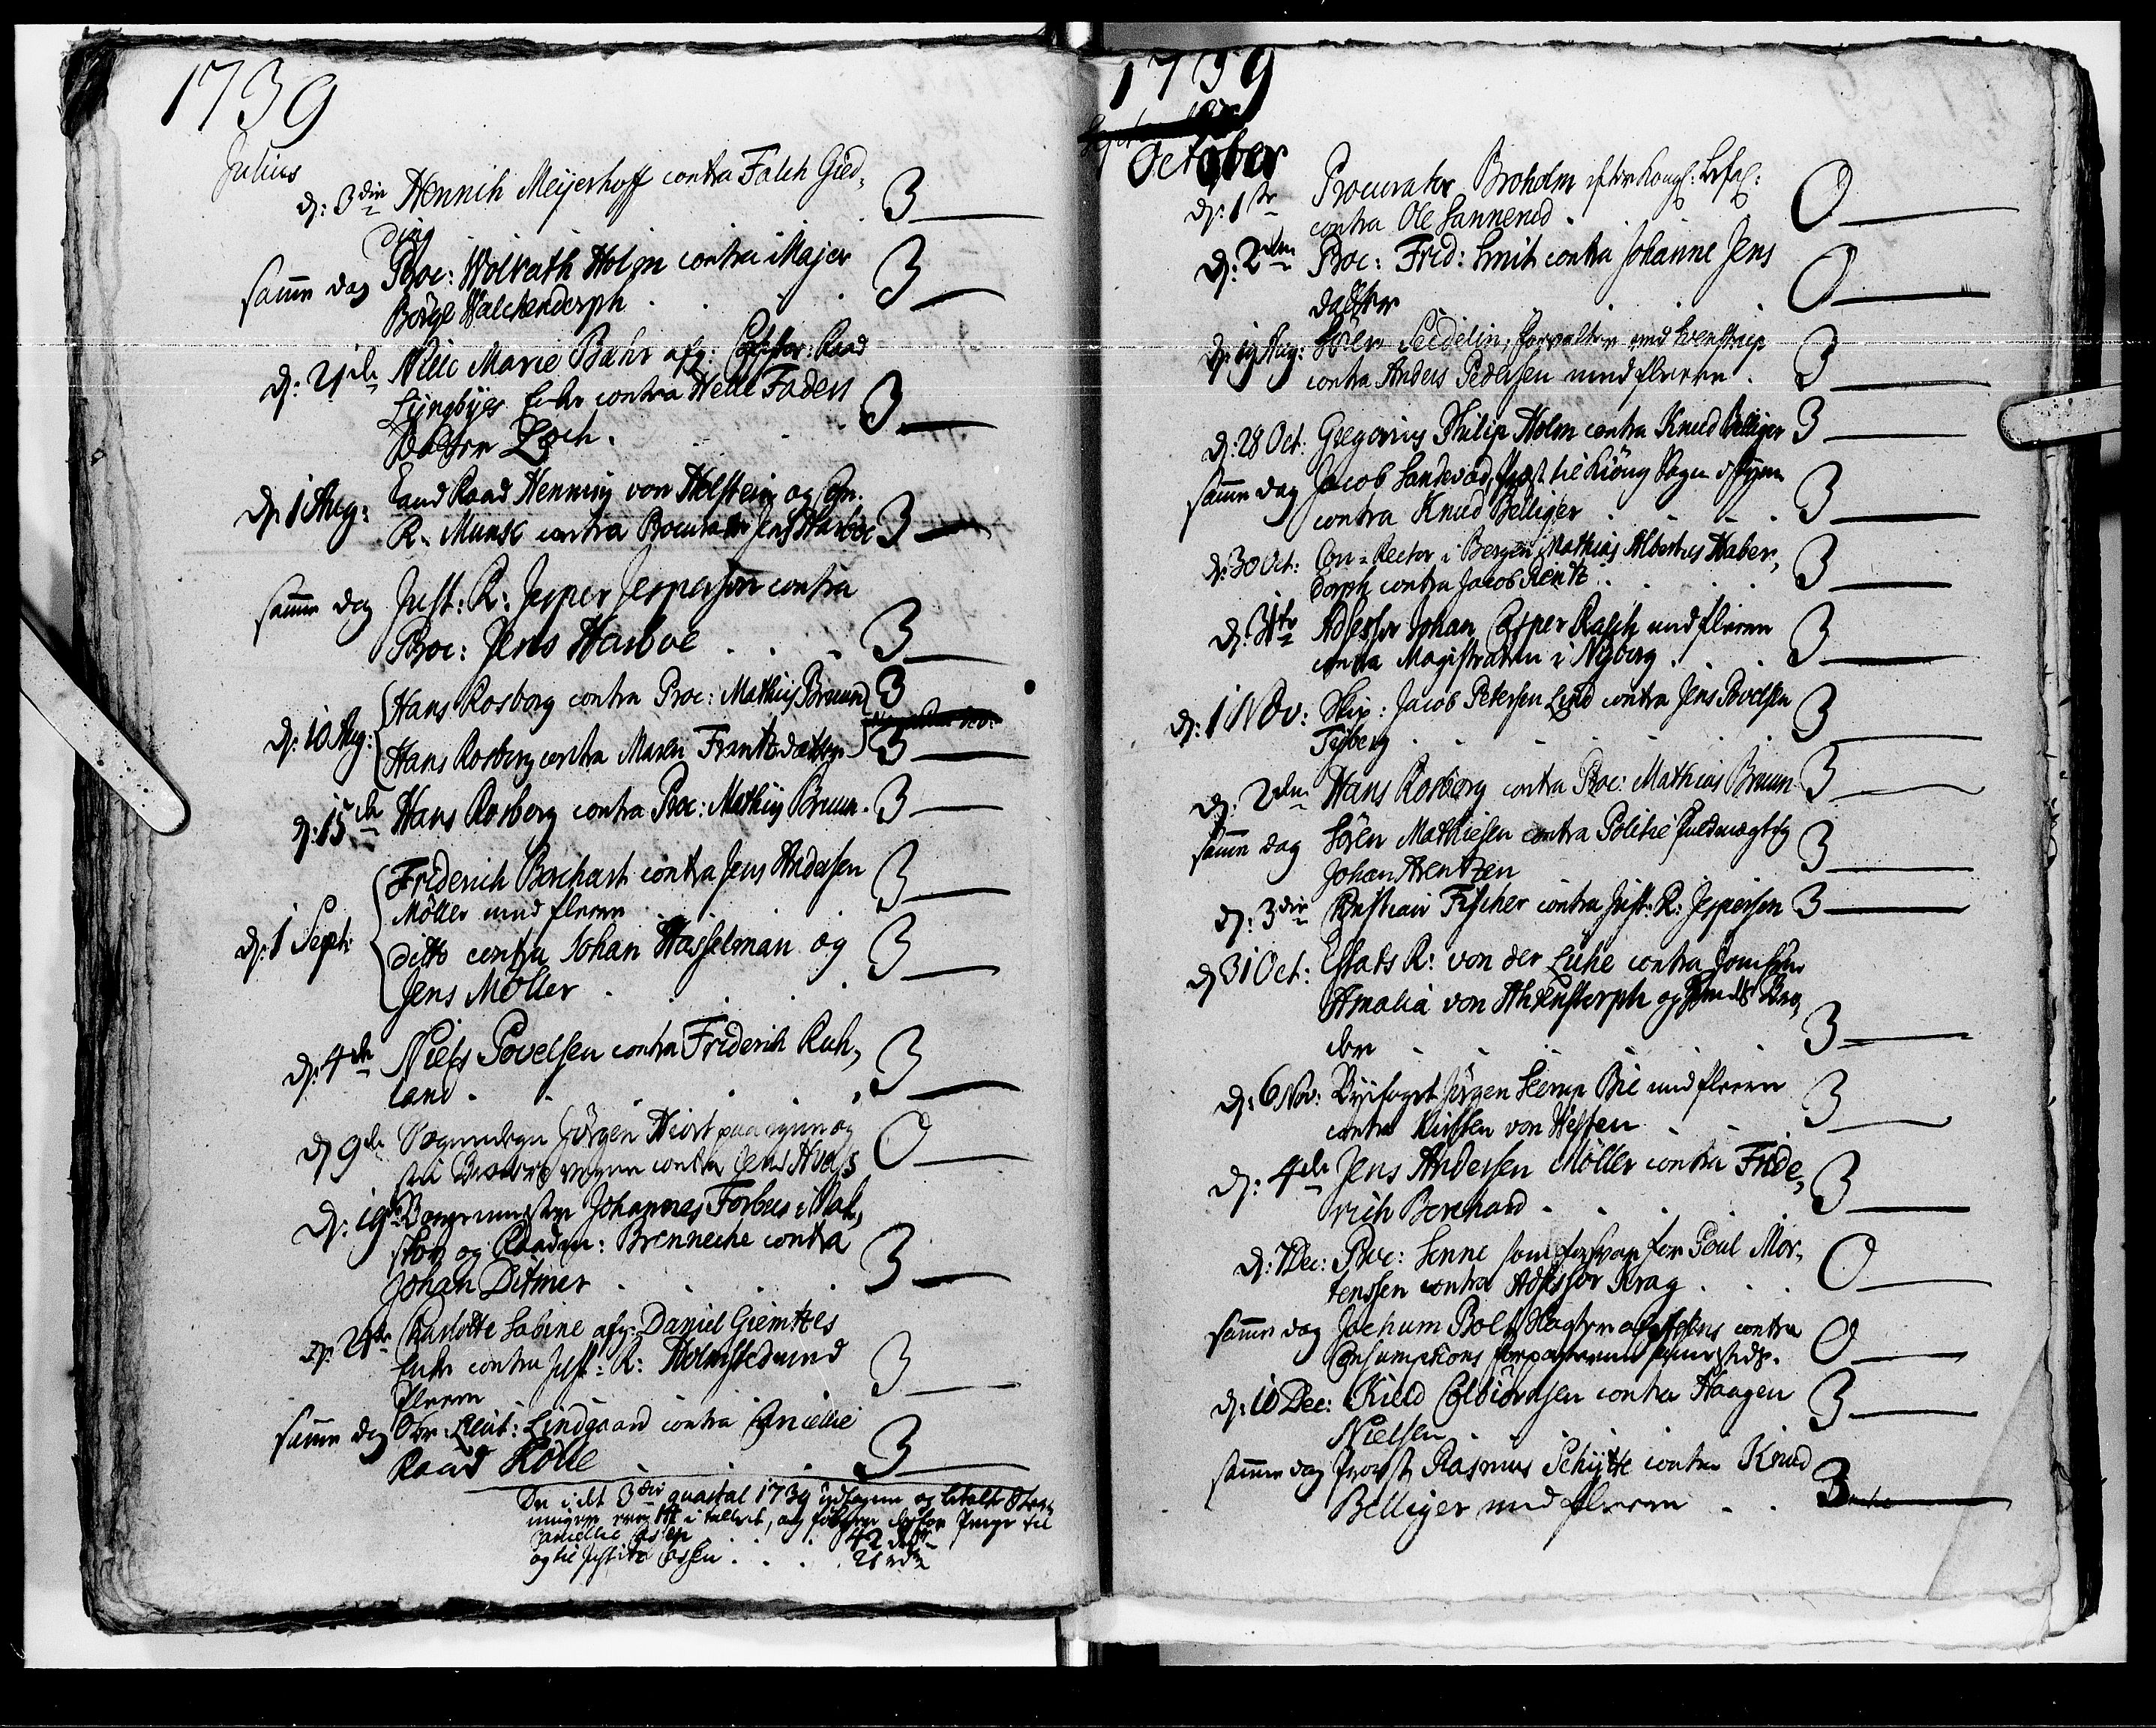 1739
Julius
d: 3die Hennich Meyerhoff contra Falch Gied, 3
ding
samme dag Proc: Wolrath Holm contra Major 3
Börge Walckendorph
d: 21de Marie Bahr afg: Raad
Lyngbyes Enke contra Faders 3
Loch.
d: 1 Aug: Land Raad Henning von Holstein og
R. Munk contra Procurator Jens Harboe 3
samme dag Just: R: Jesper Jespersen contra
Proc: Jens Harboe 3
d: 10 Aug: Hans Rosborg contra Proc: Mathias Bruun 3
Hans Rosborg contra Maren Frantzdatter 3
d: 15de Hans Rosborg contra Proc: Mathias Bruun. 3
d: 1 Sept: Friderich Borchart contra Jens Andersen 3
Möller med fleere
ditto contra Johan Hasselman og 3
Jens Möller
d: 4de Niels Povelsen contra Friderich Ruh, 3
land
d 9de Jörgen Hiort paa egne og 0
contra Jens
d: 19de Borgermester Johannes Forbus i Nak,
skov og Raadm: Brenneche contra 3
Johan Ditmer
d: Charlotte Sabine afg: Daniel Giemttes
Enke contra Just: R: Holmsted med 3
fleere
samme dag Obr: Lieut: Lindgaard contra Cancellie
Raad Rölle 3
De i dit 3die quartal 1739 udtagne og betalte Stev,
ninger ere i tallet, og
Cancellie Cassen 42
og til Justitz Cassen 21 rdr
1739
October
d: 1te Procurator Broholm efter Kongl: Befal: 0
contra Ole Sannerud
d: 2den Proc: Frid: Smit contra Johanne Jens 0
datter
d: 19 Aug: Sören Seidelin, forvalter ved 3
contra Anders Pedersen med fleere
d: 28 Oct: Gregorius Philip Holm contra Knud Belliger 3
samme dag Jacob Sandevad, Præst til Kiöng Sogn i Fyen 3
contra Knud Belliger
d: 30 Oct: Con-Rector i Bergen Mathias Albertus Haber, 3
dorph contra Jacob Rendtz
d: 31te Adsessor Johan Casper Rasch med fleere 3
contra Magistraten i Nyborg
d: 1 Nov: Skip: Jacob Petersen Lind contra Jens Povelsen 3
Fyberg
d: 2den Hans Rosborg contra Proc: Mathias Bruun 3
samme dag Sören Mathiesen contra Politie fuldmægtig 3
Johan Arentzen
d: 3die Christian Fischer contra Just: R: Jespersen 3
d 31 Oct: Etats R: von der Lühe contra Jomfrue
Amalia von Ahrenstorph og hendes Bro, 3
der
d: 6 Nov: Byefoget Jörgen Seerup Bie med fleere 3
contra Kirsten von Westen
d: 4de Jens Andersen Möller contra Fride, 3
rich Borchard
d: 7 Dec: Proc: Senne som forsvar for Poul Mor, 0
tenssen contra Adsessor Krag
samme dag Jochum Bol Slagter af Assens contra 0
Consumptions forpagteren sammesteds.
d: 10 Dec: Kield Colbiörnsen contra Haagen 3
Nielsen
samme dag Provst Rasmus Schytte contra Knud 3
Belliger med fleere